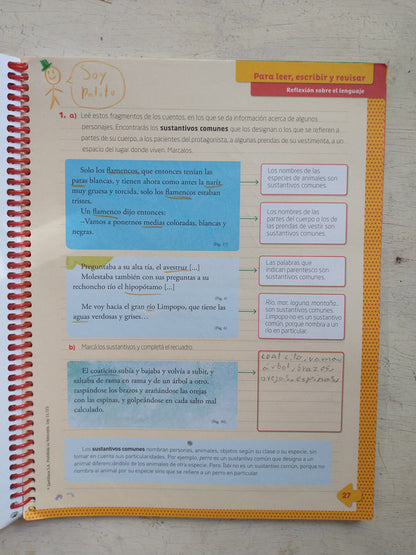 Soy
Para leer, escribir y revisar
Reflexión sobre el lenguaje
1. a) Leé estos fragmentos de los cuentos, en los que se da información acerca de algunos
personajes. Encontrarás los sustantivos comunes que los designan o los que se refieren a
partes de su cuerpo, a los pacientes del protagonista, a algunas prendas de su vestimenta, a un
espacio del lugar donde viven. Marcalos.
Solo los flamencos, que entonces tenían las
patas blancas, y tienen ahora como antes la nariz
muy gruesa y torcida, solo los flamencos estaban
tristes.
Un flamenco dijo entonces:
–Vamos a ponernos medias coloradas, blancas y
negras.
(Pág. 17)
Los nombres de las
especies de animales son
sustantivos comunes.
Los nombres de las
partes del cuerpo o los de
las prendas de vestir son
sustantivos comunes.
Preguntaba a su alta tía, el avestruz [...]
Molestaba también con sus preguntas a su
rechoncho tío el hipopótamo [...]
Me voy hacia el gran río Limpopo, que tiene las
aguas verdosas y grises...
Las palabras que
indican parentesco son
sustantivos comunes.
Río, mar, laguna, montaña...
son sustantivos comunes.
Limpopo no es un sustantivo
común, porque nombra a un
río en particular.
b) Marcá los sustantivos y completá el recuadro.
El coaticito subía y bajaba y volvía a subir, y
saltaba de rama en rama y de un árbol a otro,
raspándose los brazos y arañándose las orejas
con las espinas, y golpeándose en cada salto mal
calculado.
árbol, brazos
Los sustantivos comunes nombran personas, animales, objetos según su clase o su especie, sin
tomar en cuenta sus particularidades. Por ejemplo, perro es un sustantivo común que designa a un
animal diferenciándolo de los animales de otra especie. Pero Ilái no es un sustantivo común, porque no
nombra al animal por su especie sino que se refiere a un perro en particular.
27